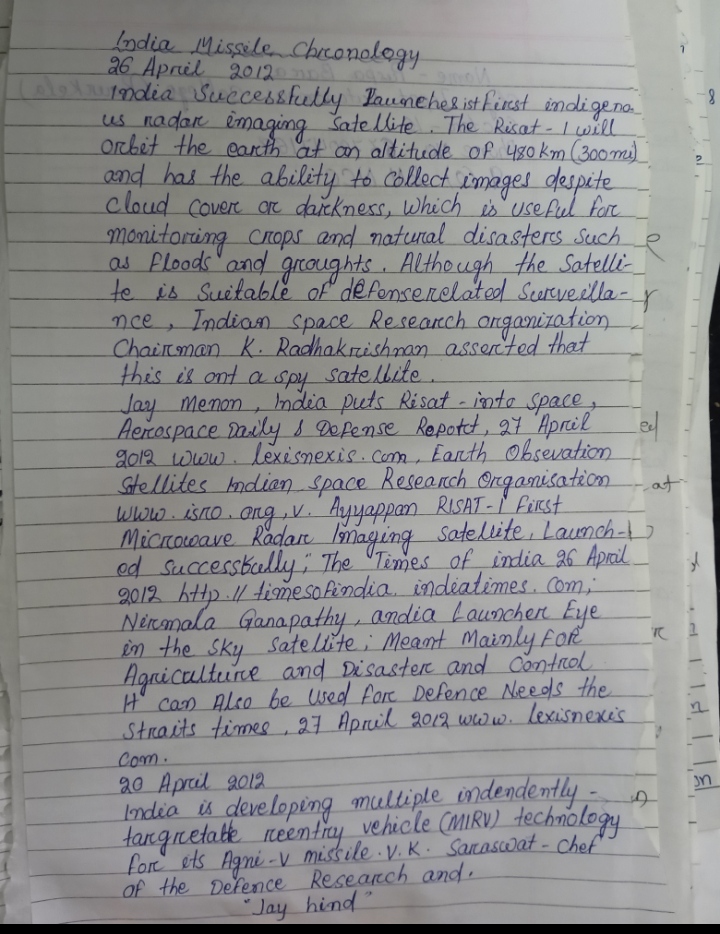 India Missile Chronology
26 April 2012
India Successfully Launches ist First indigeno
us radar imaging Satellite. The Risat-1 will
orbit the earth at an altitude of 480 km (300 mi)
and has the ability to collect images despite
Cloud cover or darkness, which is useful for
monitoring crops and natural disasters such
as floods and groughts. Although the Satelli-
te is Suitable of defense related Surveilla-
nce, Indian space Research organization
Chairman K. Radhakrishnan asserted that
this is ont a spy satellite.
Jay Menon, India puts Risat-into space,
Aerospace Daily & Defense Repotct, 27 April
2012 www. lexisnexis.com, Earth Obsevation
Stellites Indian space Research Organisation
www.isro.org, v. Ayyappan RISAT-1 First
Microwave Radar Imaging satellite, Launch-
ed successfully; The Times of india 26 April
2012 http.// timesofindia. indiatimes. com;
Nirmala Ganapathy, andia Launcher Eye
in the sky satellite; Meant Mainly For
Agriculture and Disaster and Control
It can Also be Used for Defence Needs the
Straits times, 27 April 2012 www. lexisnexis
com.
20 April 2012
India is developing multiple indendently-
targretable reentry vehicle (MIRV) technology
for its Agni-V missile. V.K. Saraswat-chef
of the Defence Research and.
"Jay hind"